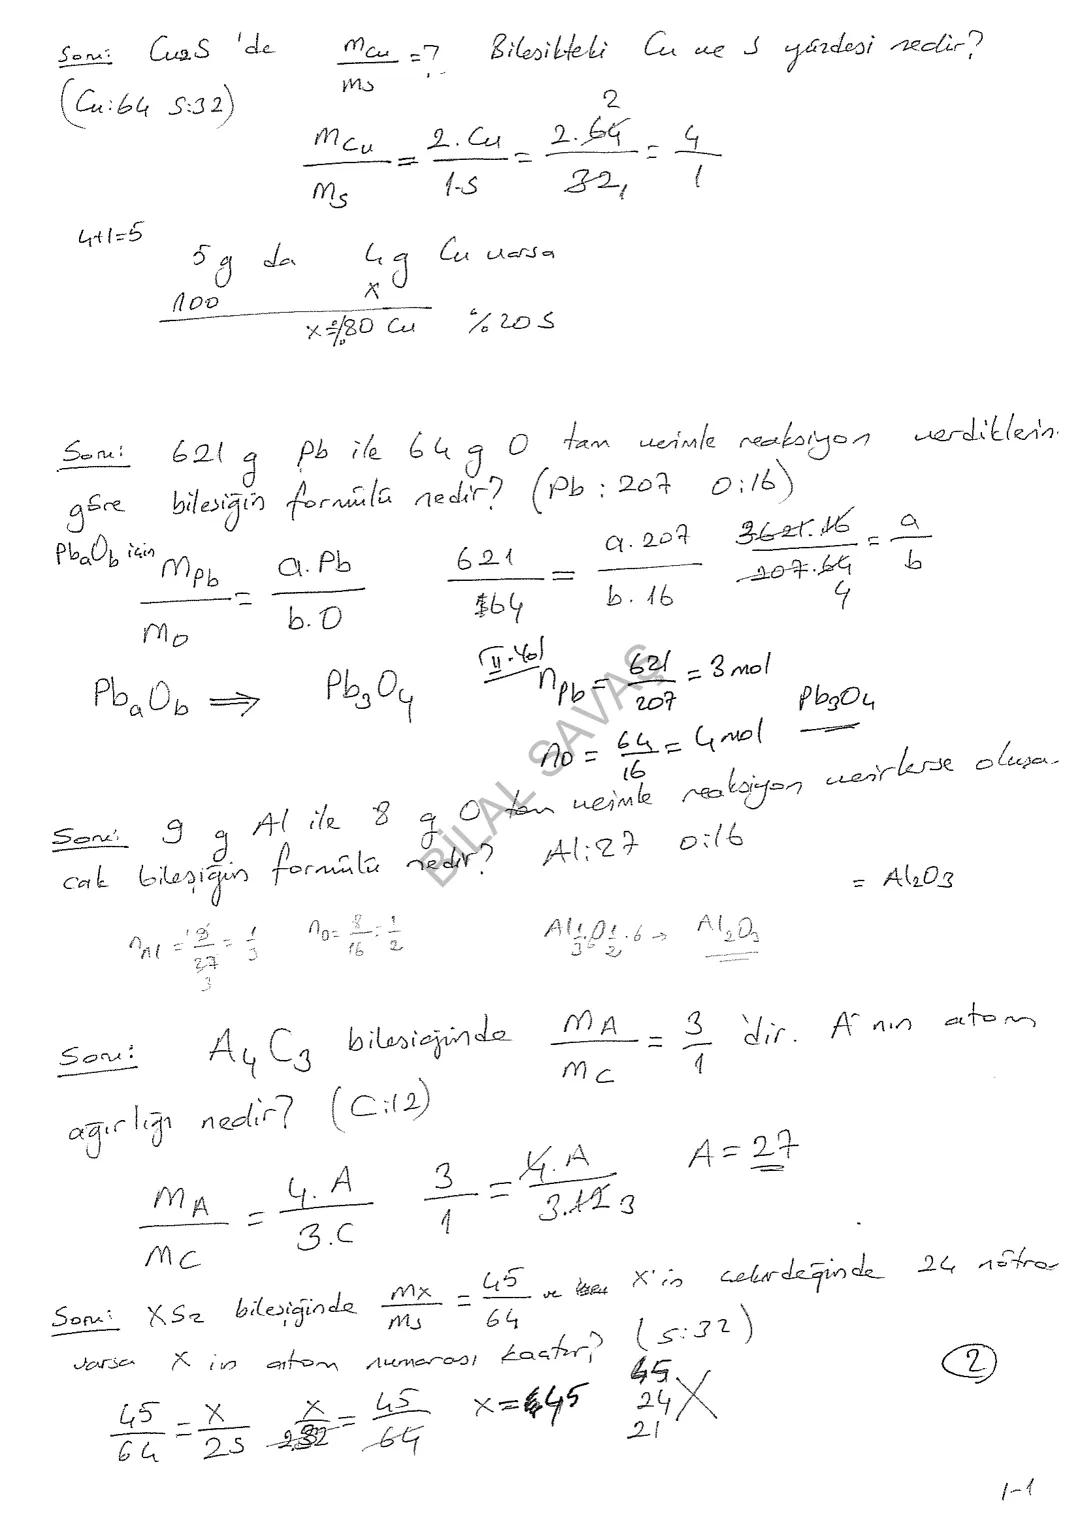 Soru: Cu2S 'de mCu/mS =? Bileşikteki Cu ve S yüzdesi nedir?
(Cu:64 S:32)
mCu/mS = 2.Cu/1.S = 2.64/32 = 4/1
2
1
4+1=5
5g da 4g Cu varsa
100 x
x=%80 Cu %20 S
Soru: 621 g Pb ile 64 g O tam verimle reaksiyon verdiklerin.
göre bileşiğin formülü nedir? (Pb: 207 O:16)
PbaOb için mPb/mO = a.Pb/b.O 621/64 = a.207/b.16 3621.16/207.64 = a/b
4
PbaOb ⇒ Pb3O4
II. Yol nPb = 621/207 = 3 mol Pb3O4
nO = 64/16 = 4 mol
BİLAL SAVAŞ
Soru: 9 g Al ile 8 g O tam verimle reaksiyon verirlerse oluşa-
cak bileşiğin formülü nedir? Al:27 O:16
= Al2O3
nAl = 9/27 = 1/3 nO = 8/16 = 1/2 Al1/3.6 O1/2.6 → Al2O3
1
3
Soru: A4C3 bileşiğinde mA/mC = 3/1 'dir. A'nın atom
ağırlığı nedir? (C:12)
mA/mC = 4.A/3.C 3/1 = 4.A/3.12 3 A = 27
Soru: XS2 bileşiğinde mX/mS = 45/64 ve X'in çekirdeğinde 24 nötro
varsa X in atom numarası kaçtır? (S:32)
45/64 = X/2S X/2.32 = 45/64 X = 45
45
24 X
21
2
1-1